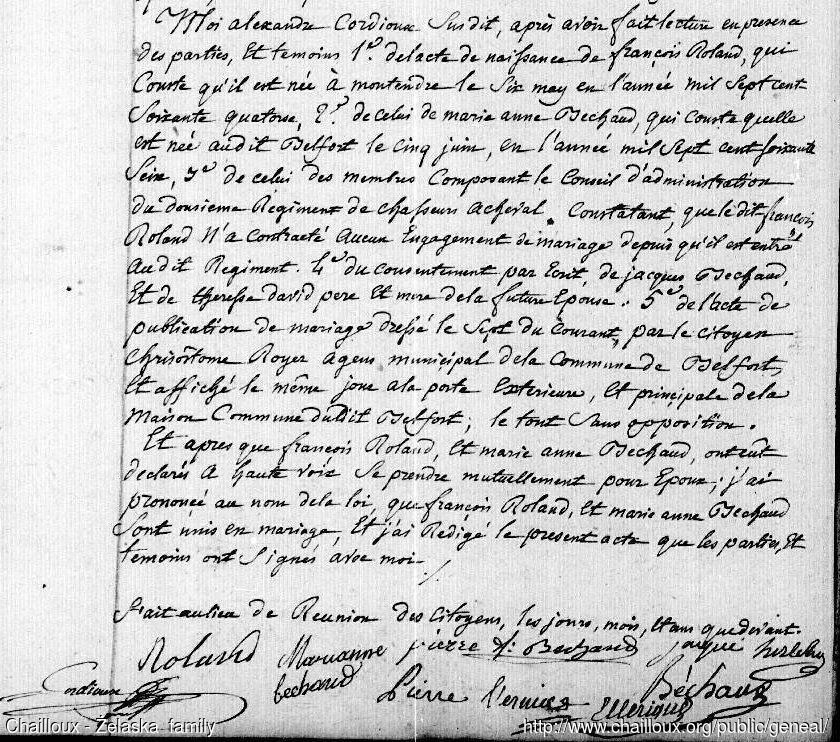 Moi alexandre Cordioux Susdit, après avoir fait lecture en presence
des parties, Et temoins 1°. de lacte de naissance de françois Roland, qui
Conste qu'il est née à montendre le Six may en l'année mil Sept cent
Soixante quatorse, 2°. de celui de marie anne Bechaud, qui Conste quelle
est née audit Belfort le Cinq juin, en l'année mil Sept cent soixante
Seix, 3° de celui des membres Composant le Conseil d'administration
du dousieme Régiment de chasseurs acheval. Constatant, que ledit françois
Roland N'a Contracté aucun Engagement de mariage depuis qu'il est entré
audit Regiment. 4° du consentement par Ecrit, de jacques Bechaud,
Et de theresse david pere Et mere dela future Epouse. 5° de l'acte de
publication de mariage dressé le Sept du Courant, par le citoyen
Chrisôstome Royer agens municipal dela Commune de Belfort,
Et affiché le même jour ala porte Extérieure, Et principale dela
Maison Commune dudit Belfort; le tout Sans opposition.
Et apres que françois Roland, Et marie anne Bechaud, ont eût
declarés a haute voix Se prendre mutuellement pour Epoux; j'ai
prononcé au nom dela loi, que françois Roland, Et marie anne Bechaud
Sont unis en mariage, Et j'ai Redigé le present acte que les parties, Et
temoins ont Signés avec moi.
Fait au lieu de Reunion des Citoyens, les jours, mois, Et ans que devant.
Roland Marianne pierre Bechaud jaque
Cordioux bechaud Pierre Béchaud
Chailloux - Zelaska family http://www.chailloux.org/public/geneal/